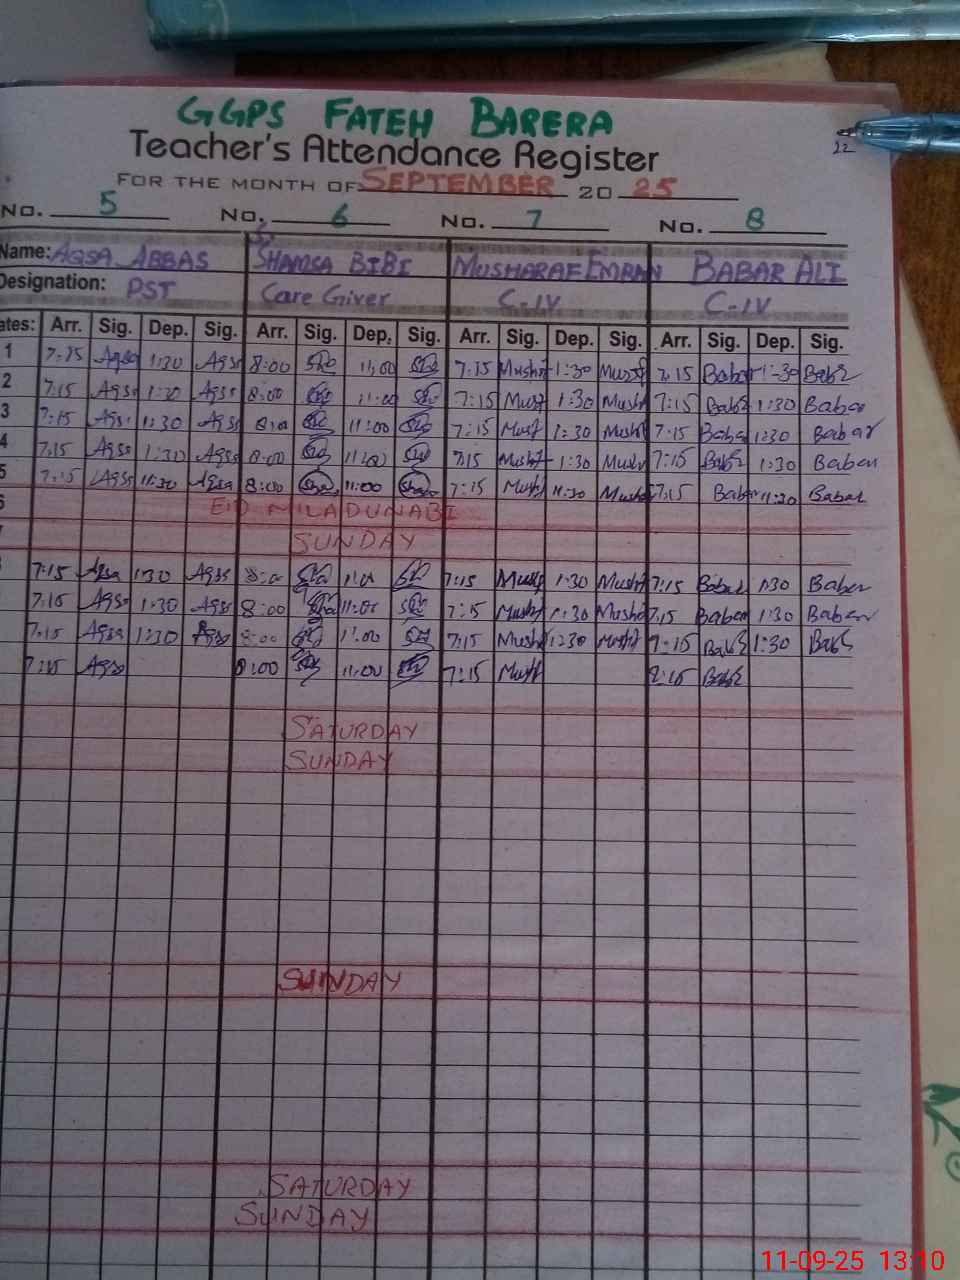 GGPS FATEH BARERA
Teacher's Attendance Register
22
FOR THE MONTH OF SEPTEMBER 20 25
No. 5 No. 6 No. 7 No. 8
Name: AQSA ABBAS SHAMSA BIBI MUSHARAF EMRAN BABAR ALI
Designation: PST Care Giver C-IV C-IV
ates: Arr. Sig. Dep. Sig. Arr. Sig. Dep. Sig. Arr. Sig. Dep. Sig. Arr. Sig. Dep. Sig.
1 7:15 Aqsa 1:30 Aqsa 8:00 11:00 7:15 1:30 7:15 Babar 1:30
2 7:15 Aqsa 1:30 Aqsa 8:00 11:00 7:15 1:30 7:15 1:30 Babar
3 7:15 1:30 8:00 11:00 7:15 1:30 7:15 Babar 1:30 Babar
4 7:15 Aqsa 1:30 Aqsa 8:00 11:00 7:15 1:30 7:15 1:30 Babar
5 7:15 Aqsa 11:30 Aqsa 8:00 Sha 11:00 Sha 7:15 11:30 7:15 Babar 11:30 Babar
6 EID MILADUNABI
7 SUNDAY
7:15 Aqsa 1:30 Aqsa 8:00 11:00 7:15 1:30 7:15 Babar 1:30 Babar
7:15 Aqsa 1:30 Aqsa 8:00 11:00 7:15 1:30 7:15 Babar 1:30 Babar
7:15 Aqsa 1:30 Aqsa 8:00 11:00 7:15 1:30 7:15 1:30
7:15 Aqsa 8:00 11:00 7:15 7:15
SATURDAY
SUNDAY
SUNDAY
SATURDAY
SUNDAY
11-09-25 13:10